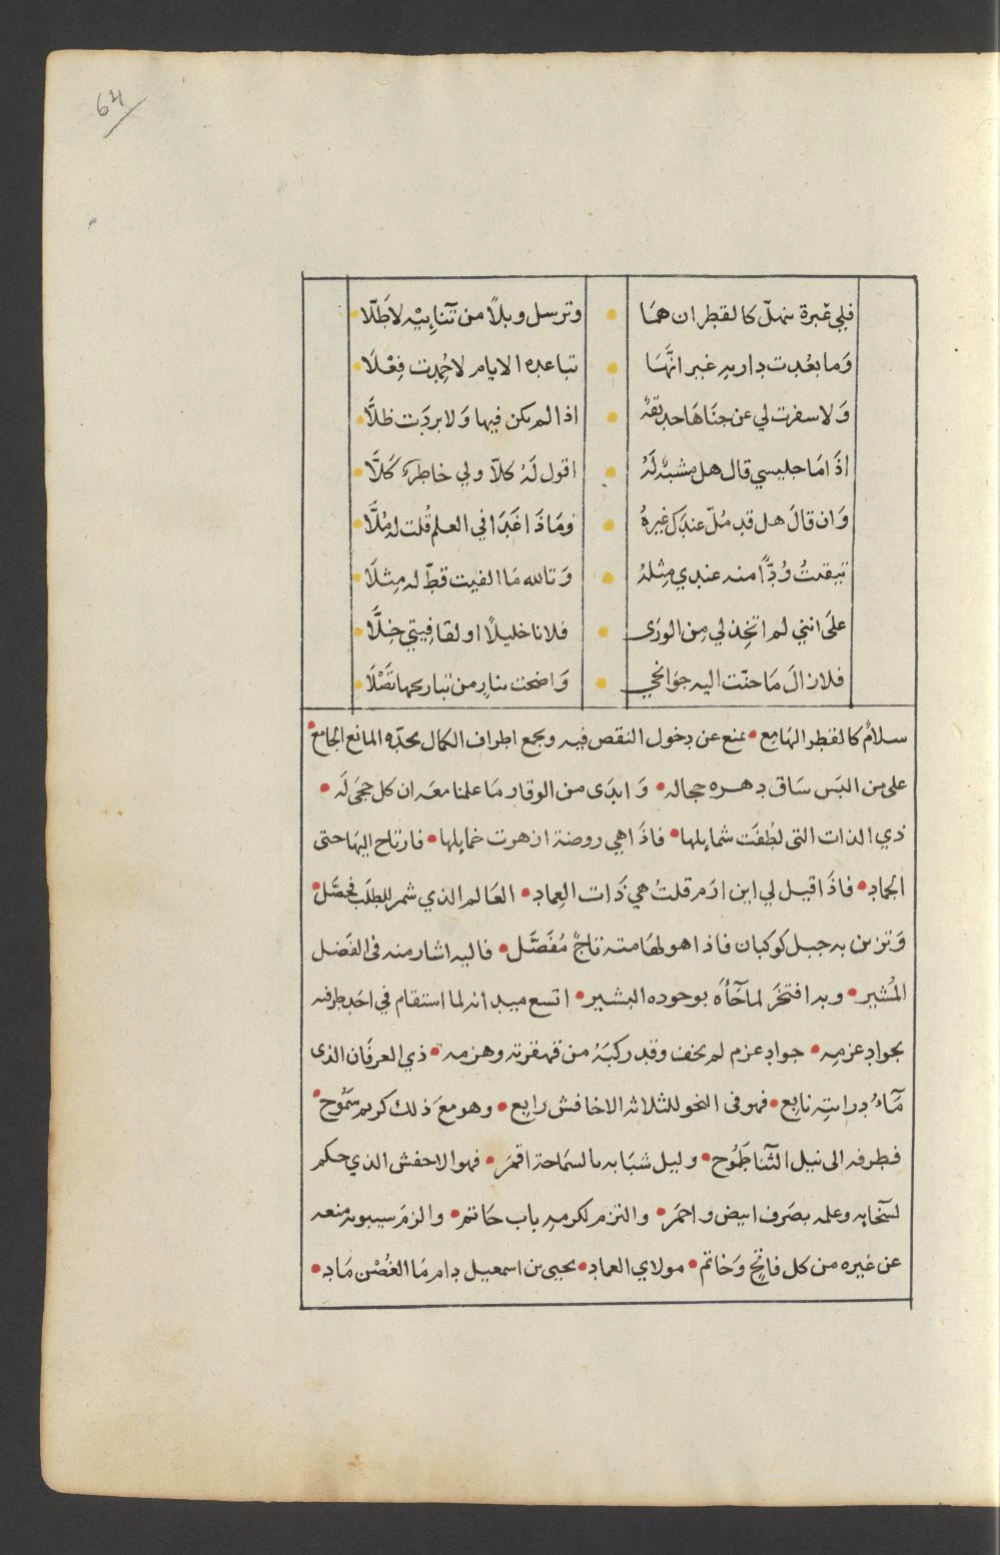 64
فلي عَبرة تنهلّ كالقطر ان همَا • وترسل وبلًا من تنائيهِ لا طَلّا
وَما بعُدت داربهِ غير انَّهَا • تباعده الايام لا حُمِدت فِعْلَا
وَلا سفرت لي عن جنَاهَا حديقةٌ • اذا لم يكن فيها وَلا بردَت ظلَّا
اذَا مَا جليسي قال هل مشبهٌ لَهُ • اقول لَهُ كلّا ولي خاطرٌ كَلَّا
وَان قالَ هل قد مُلّ عندَك غيرهُ • ومَاذَا غَدَا في العلم قُلت له مُلَّا
تيقنتُ وُدًّا منه عندي مِثلهُ • وَتالله مَا الفيت قطّ له مِثلَا
علَى انني لم اتخِذ لي مِن الورَى • فلانا خليلًا او لقا فِيتي خِلَّا
فلا زالَ مَا حنّت اليه جوَانحي • وَاضحت بنارٍ من تباريحها تَصْلَا
سلامٌ كالقطر الهَامِع • يمنع عن دخول النقص فيه ويجمع اطراف الكمال بحدّه المانع الجامع •
على من البَس سَاق دهره حجاله • وَابدَى من الوقار مَا علمنا معَه ان كل حجَى لَه •
ذي الذات التى لطُفَت شمايلها • فاذَا هي روضة ازهرت خمايلها • فارتاح اليهَا حتى
الجماد • فاذَا قيل لي اين ارَم قلتُ هي ذَات العِماد • العَالم الذي شمر للطلَب فحصَّل •
وَتزين به جبل كوكبان فاذا هو لهامته تاجٌ مُفَصَّل • فاليه اشار منه فى الفَضل
المُشير • وبه افتخَر لما جَاءَه بوجوده البشير • اتسع ميدانه لما استقام في احَد طرفيه
بجوادِ عزمِه • جوادِ عزم لم يخف وقد ركبَهُ من قهقرته وهزمه • ذي العرفَان الذى
مَآءُ درايتِه نابع • فهو فى النحو للثلاثه الاخافش رابع • وهو معَ ذلك كريم سَمُوح •
فطرفه الى نيل الثَّنا طَمُوح • وليل شبَابه بالسمَاحة اقمَر • فهو الاخفش الذي حكم
لسَخَابه وعلمه بصَرف ابيض واحمَر • والتزم لكرمه باب حَاتم • والزمَ سيبويه منعه
عن غيره من كل فاتحٍ وَخَاتم • مولاي العماد • يحيى بن اسمعيل دام مَا الغُصْن مَاد •